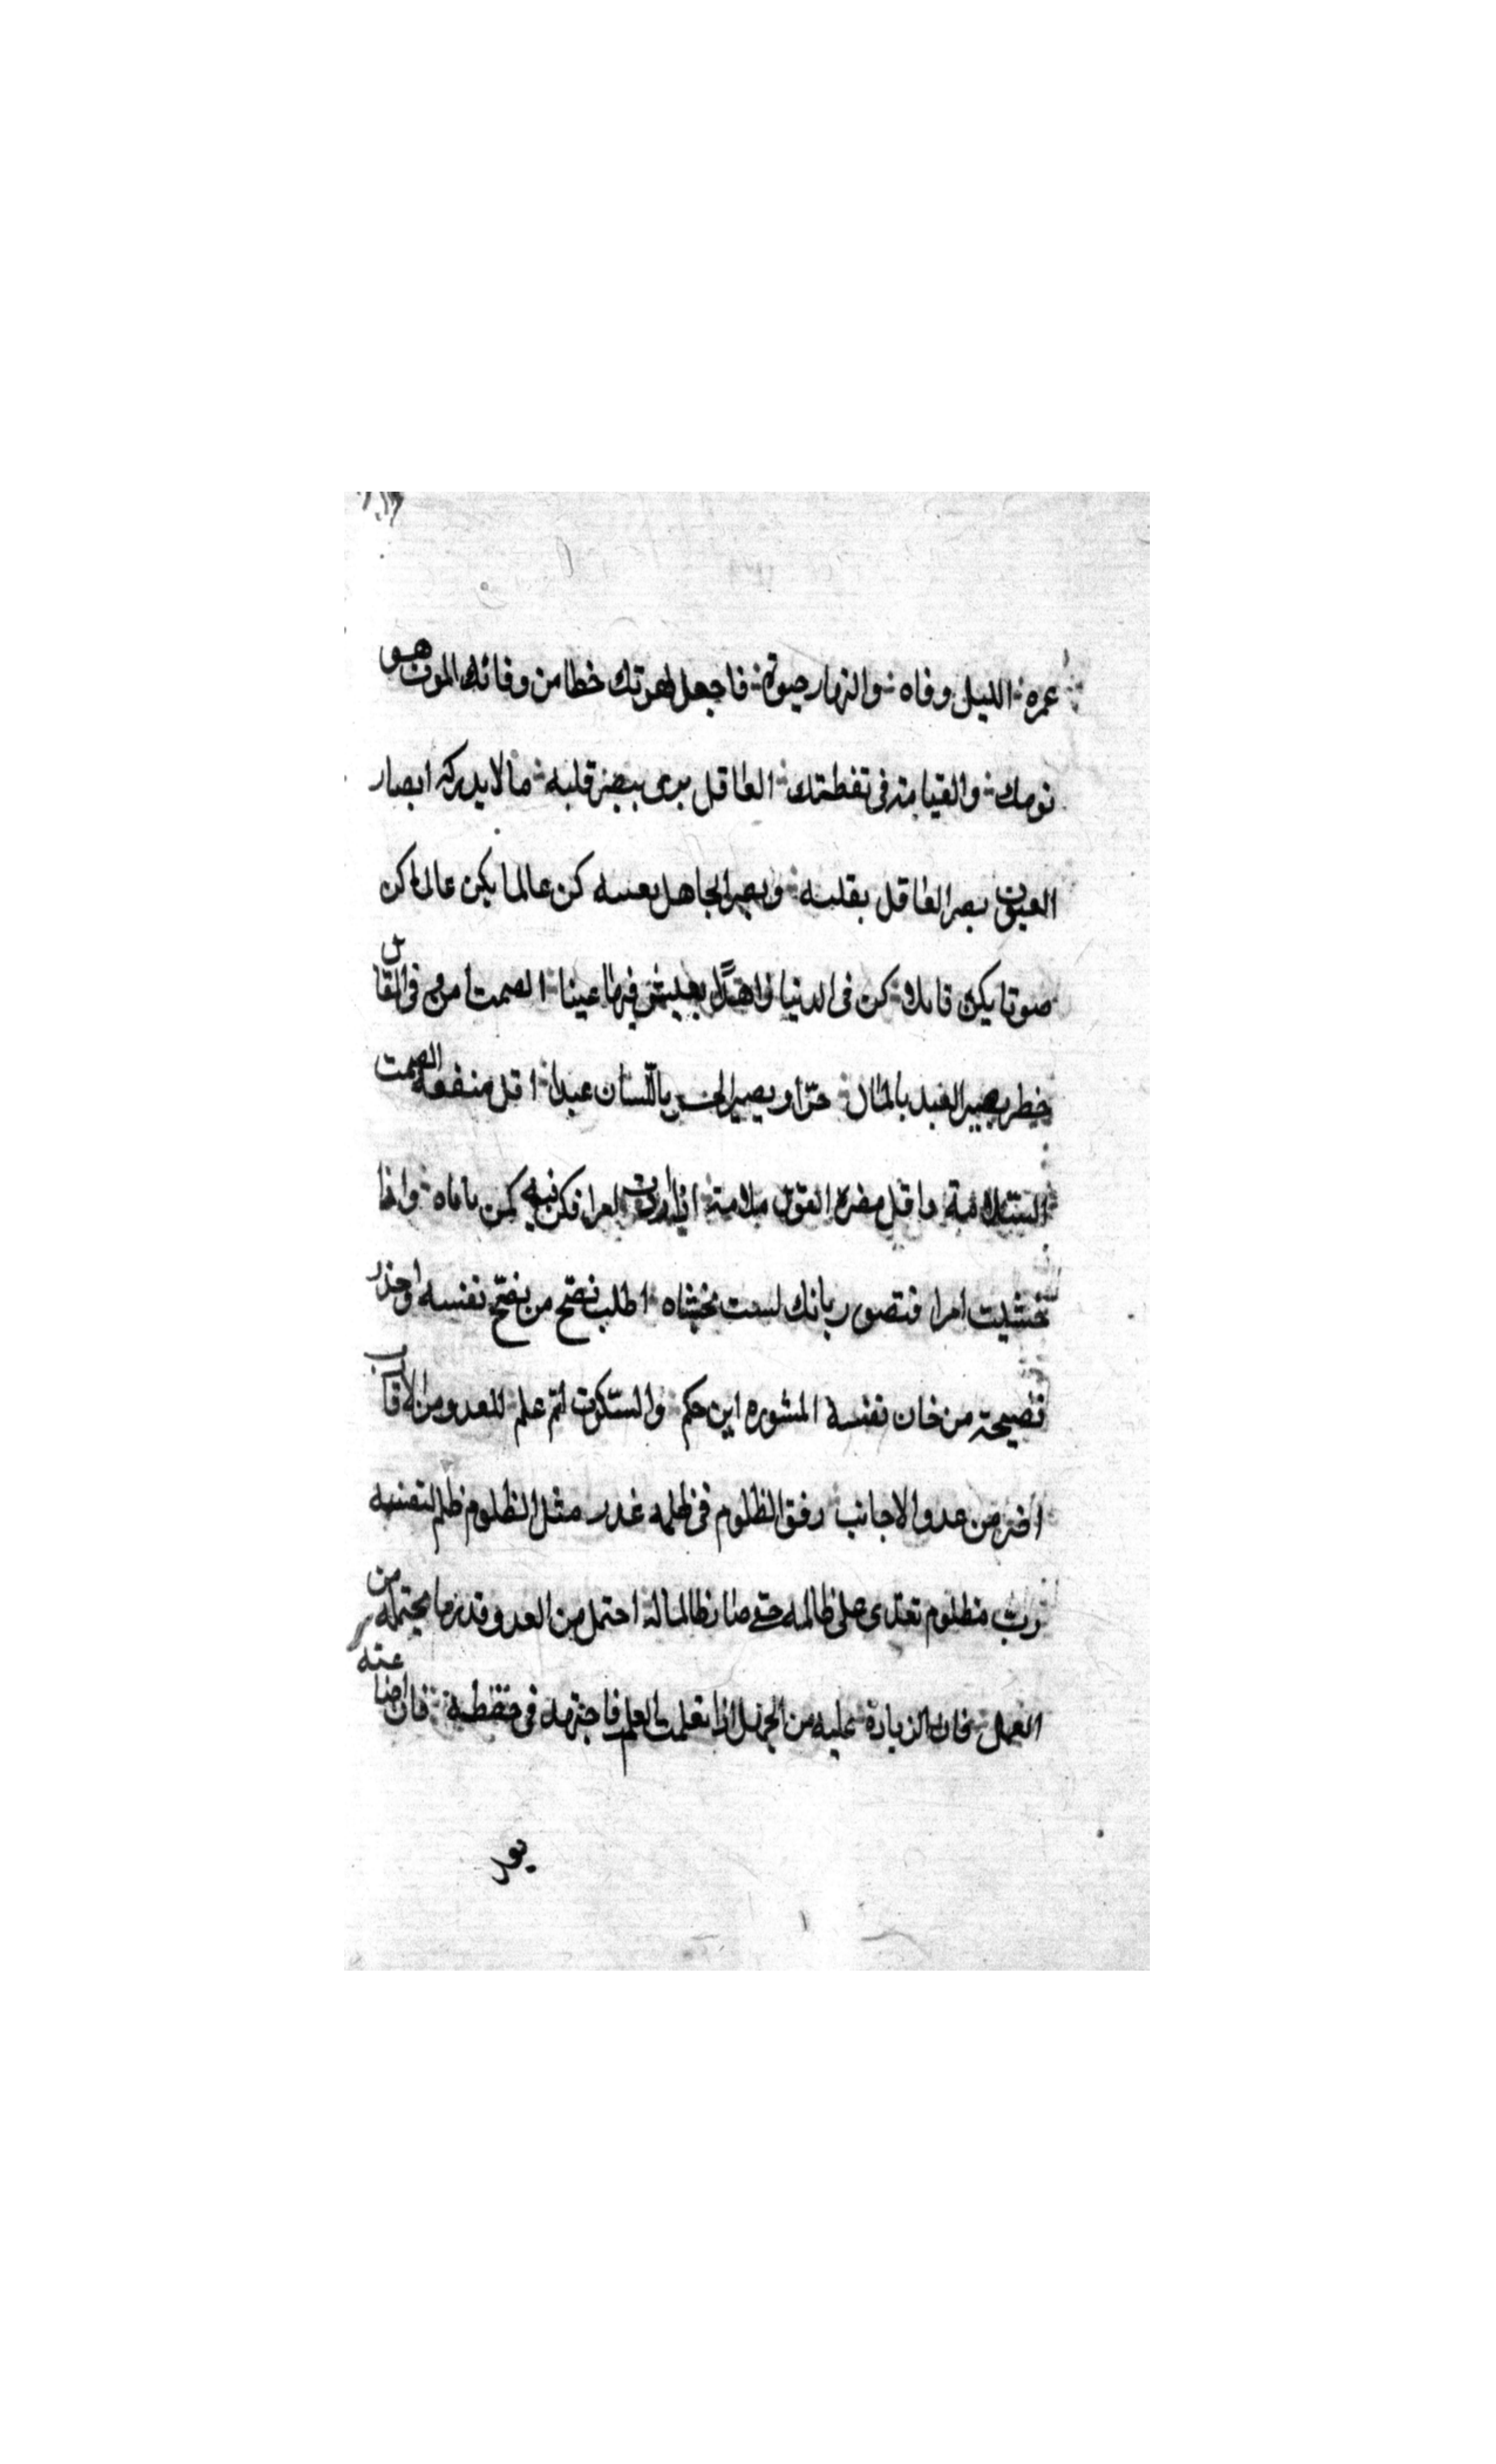 عمره الليل وفاه والنهار حيوة فاجعل لحيوتك خطا من وفاتك الموت هو
نومك والقيامة فى تفطنتك العاقل يرى ببصر قلبه مالا يدركه ابصار
العيون بصر العاقل بقلبه وبصر الجاهل بعينه كن عالما يكن عالك كن
صوتا يكن كن فى الدنيا زاهدًا يعيش فيها الصمت امن فى
خطر يصير العبد بالمال حرّا ويصير الحر باللّسان عبدا اقل منفعة الصمت
السّلامة واقل مضرة القول ملامة اذا اردت فكن فيه كمن واذا
خشيت امرا فتصور بانك لست تخشاه اطلب نصح من نصح نفسه واحذر
نصيحة من خان نفسه المشوره ابن حكم والسّكوت اتم علم العدو من الاقارب
اضر من عدو الاجانب رفق الظلوم فى ظلمه غدر مثل الظلوم ظلم لنفسه
ربّ مظلوم تعدى على ظالمه حتى صار ظالما له احتمل من العدو قدر ما يحتمله من
العمل فان الزيادة عليه من الجهل اذا تعلمت العلم فاجتهد فى حفظه فان اضاعته